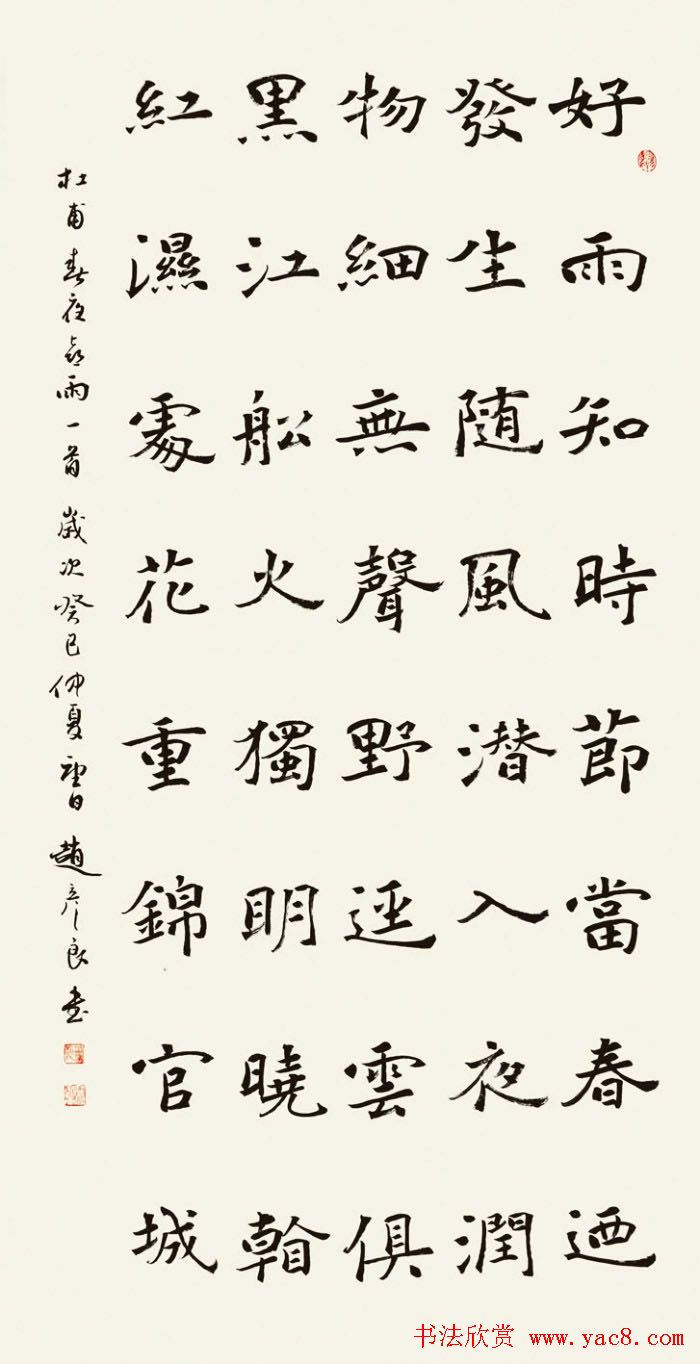 好雨知時節當春迺
發生随風潜入夜潤
物細無聲野逕雲俱
黑江舩火獨明曉看
紅濕處花重錦官城
杜甫春夜喜雨一首 歲次癸巳仲夏望日 趙彥良書
书法欣赏 www.yac8.com